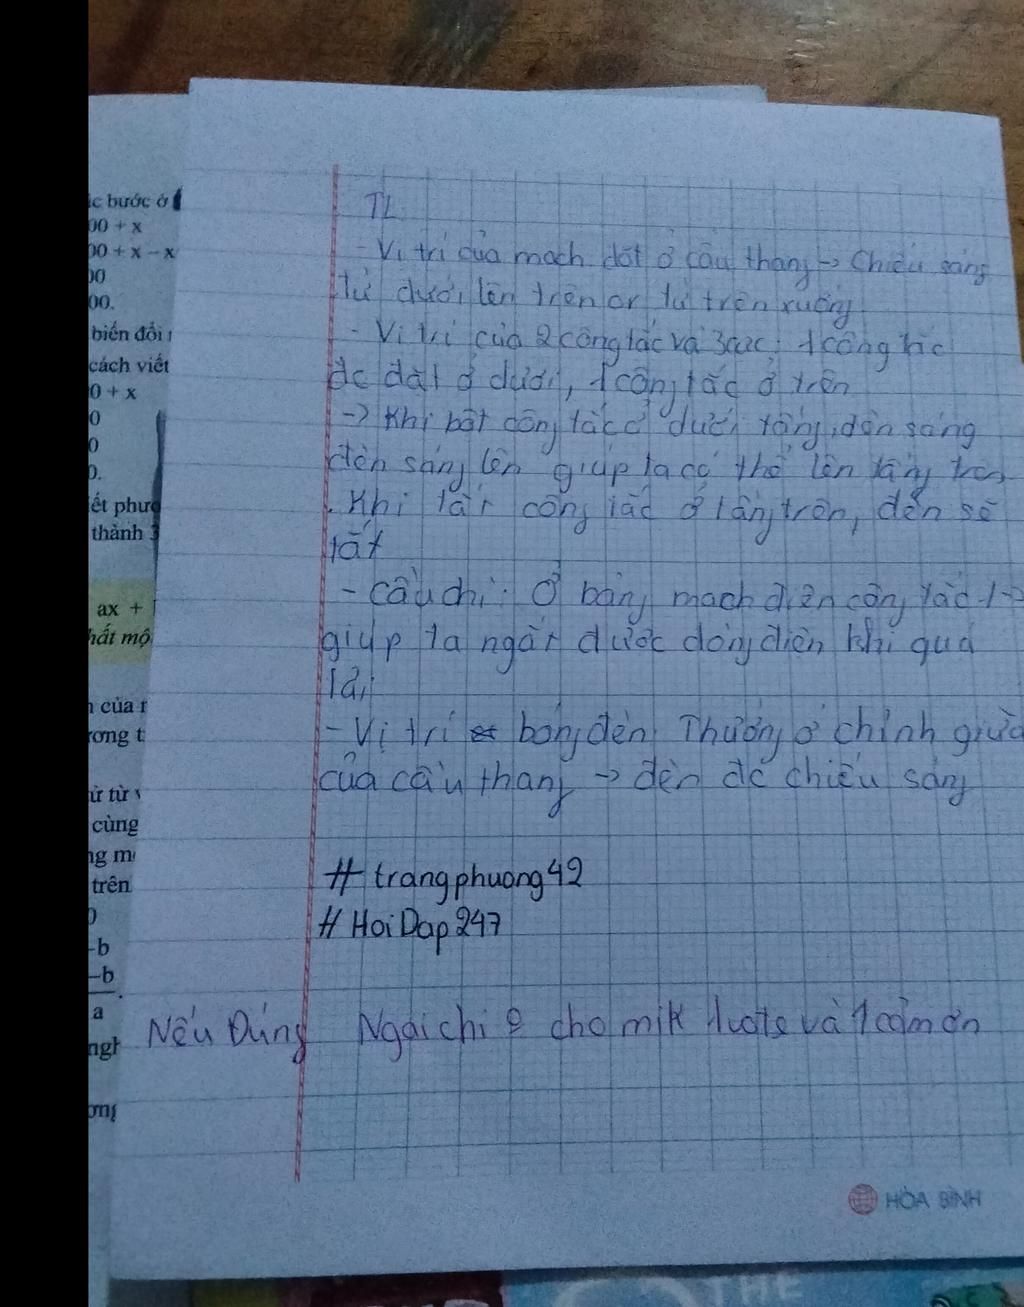 ic bước ở
00 + x
00 + x − x
00
00.
biến đổi
cách viết
0 + x
0
0
0.
ết phươ
thành 3
ax +
hất mộ
n của r
ương t
ử từ v
cùng
ng m
trên
0
-b
−b
a
ngh
ơng
TL
- Vị trí của mạch đặt ở cầu thang → Chiếu sáng
từ dưới lên trên or từ trên xuống
- Vị trí của 2 công tắc và 3 cực: 1 công tắc
đc đặt ở dưới, 1 công tắc ở trên
→ Khi bật công tắc ở dưới tầng, đèn sáng
đèn sáng lên giúp ta có thể lên tầng trên
. Khi tắt công tắc ở tầng trên, đèn sẽ
tắt
- Cầu chì: Ở bảng mạch điện công tắc 1→
giúp ta ngắt được dòng điện khi quá
tải
- Vị trí bóng đèn Thường ở chính giữa
của cầu thang → đèn để chiếu sáng
# trangphuong42
# HoiDap247
Nếu Đúng Ngại chi e cho mik 1vote và 1 cảm ơn
HÒA BÌNH
THE